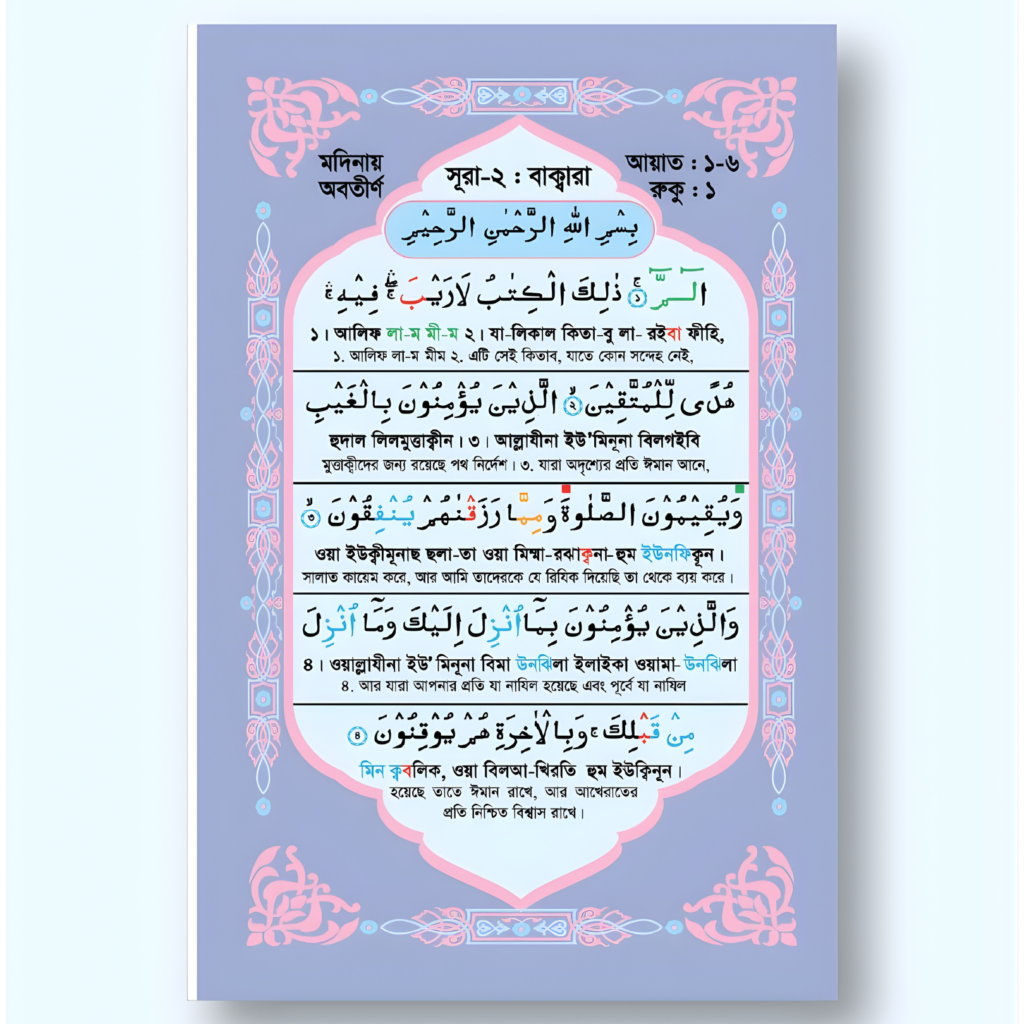 মদিনায়
অবতীর্ণ
সূরা-২ : বাক্বারা
আয়াত : ১-৬
রুকু : ১
بِسْمِ اللّٰهِ الرَّحْمٰنِ الرَّحِيْمِ
الٓـمّٓ ۚ ﴿۱﴾ ذٰلِكَ الْكِتٰبُ لَارَيْبَ ۛۖۚ فِيْهِ ۛۚ
১। আলিফ লা-ম মী-ম ২। যা-লিকাল কিতা-বু লা- রইবা ফীহি,
১. আলিফ লা-ম মীম ২. এটি সেই কিতাব, যাতে কোন সন্দেহ নেই,
هُدًى لِّلْمُتَّقِيْنَ ۙ ﴿۲﴾ الَّذِيْنَ يُؤْمِنُوْنَ بِالْغَيْبِ
হুদাল লিলমুত্তাক্বীন। ৩। আল্লাযীনা ইউ'মিনূনা বিলগইবি
মুত্তাক্বীদের জন্য রয়েছে পথ নির্দেশ। ৩. যারা অদৃশ্যের প্রতি ঈমান আনে,
وَيُقِيْمُوْنَ الصَّلٰوةَ وَمِمَّا رَزَقْنٰهُمْ يُنْفِقُوْنَ ۙ ﴿۳﴾
ওয়া ইউক্বীমূনাছ ছলা-তা ওয়া মিম্মা-রঝাক্বনা-হুম ইউনফিকূন।
সালাত কায়েম করে, আর আমি তাদেরকে যে রিযিক দিয়েছি তা থেকে ব্যয় করে।
وَالَّذِيْنَ يُؤْمِنُوْنَ بِمَآ اُنْزِلَ اِلَيْكَ وَمَآ اُنْزِلَ
৪। ওয়াল্লাযীনা ইউ'মিনূনা বিমা উনঝিলা ইলাইকা ওয়ামা- উনঝিলা
৪. আর যারা আপনার প্রতি যা নাযিল হয়েছে এবং পূর্বে যা নাযিল
مِنْ قَبْلِكَ ۚ وَبِالْاٰخِرَةِ هُمْ يُوْقِنُوْنَ ﴿۴﴾
মিন ক্ববলিক, ওয়া বিলআ-খিরতি হুম ইউক্বিনূন।
হয়েছে তাতে ঈমান রাখে, আর আখেরাতের
প্রতি নিশ্চিত বিশ্বাস রাখে।